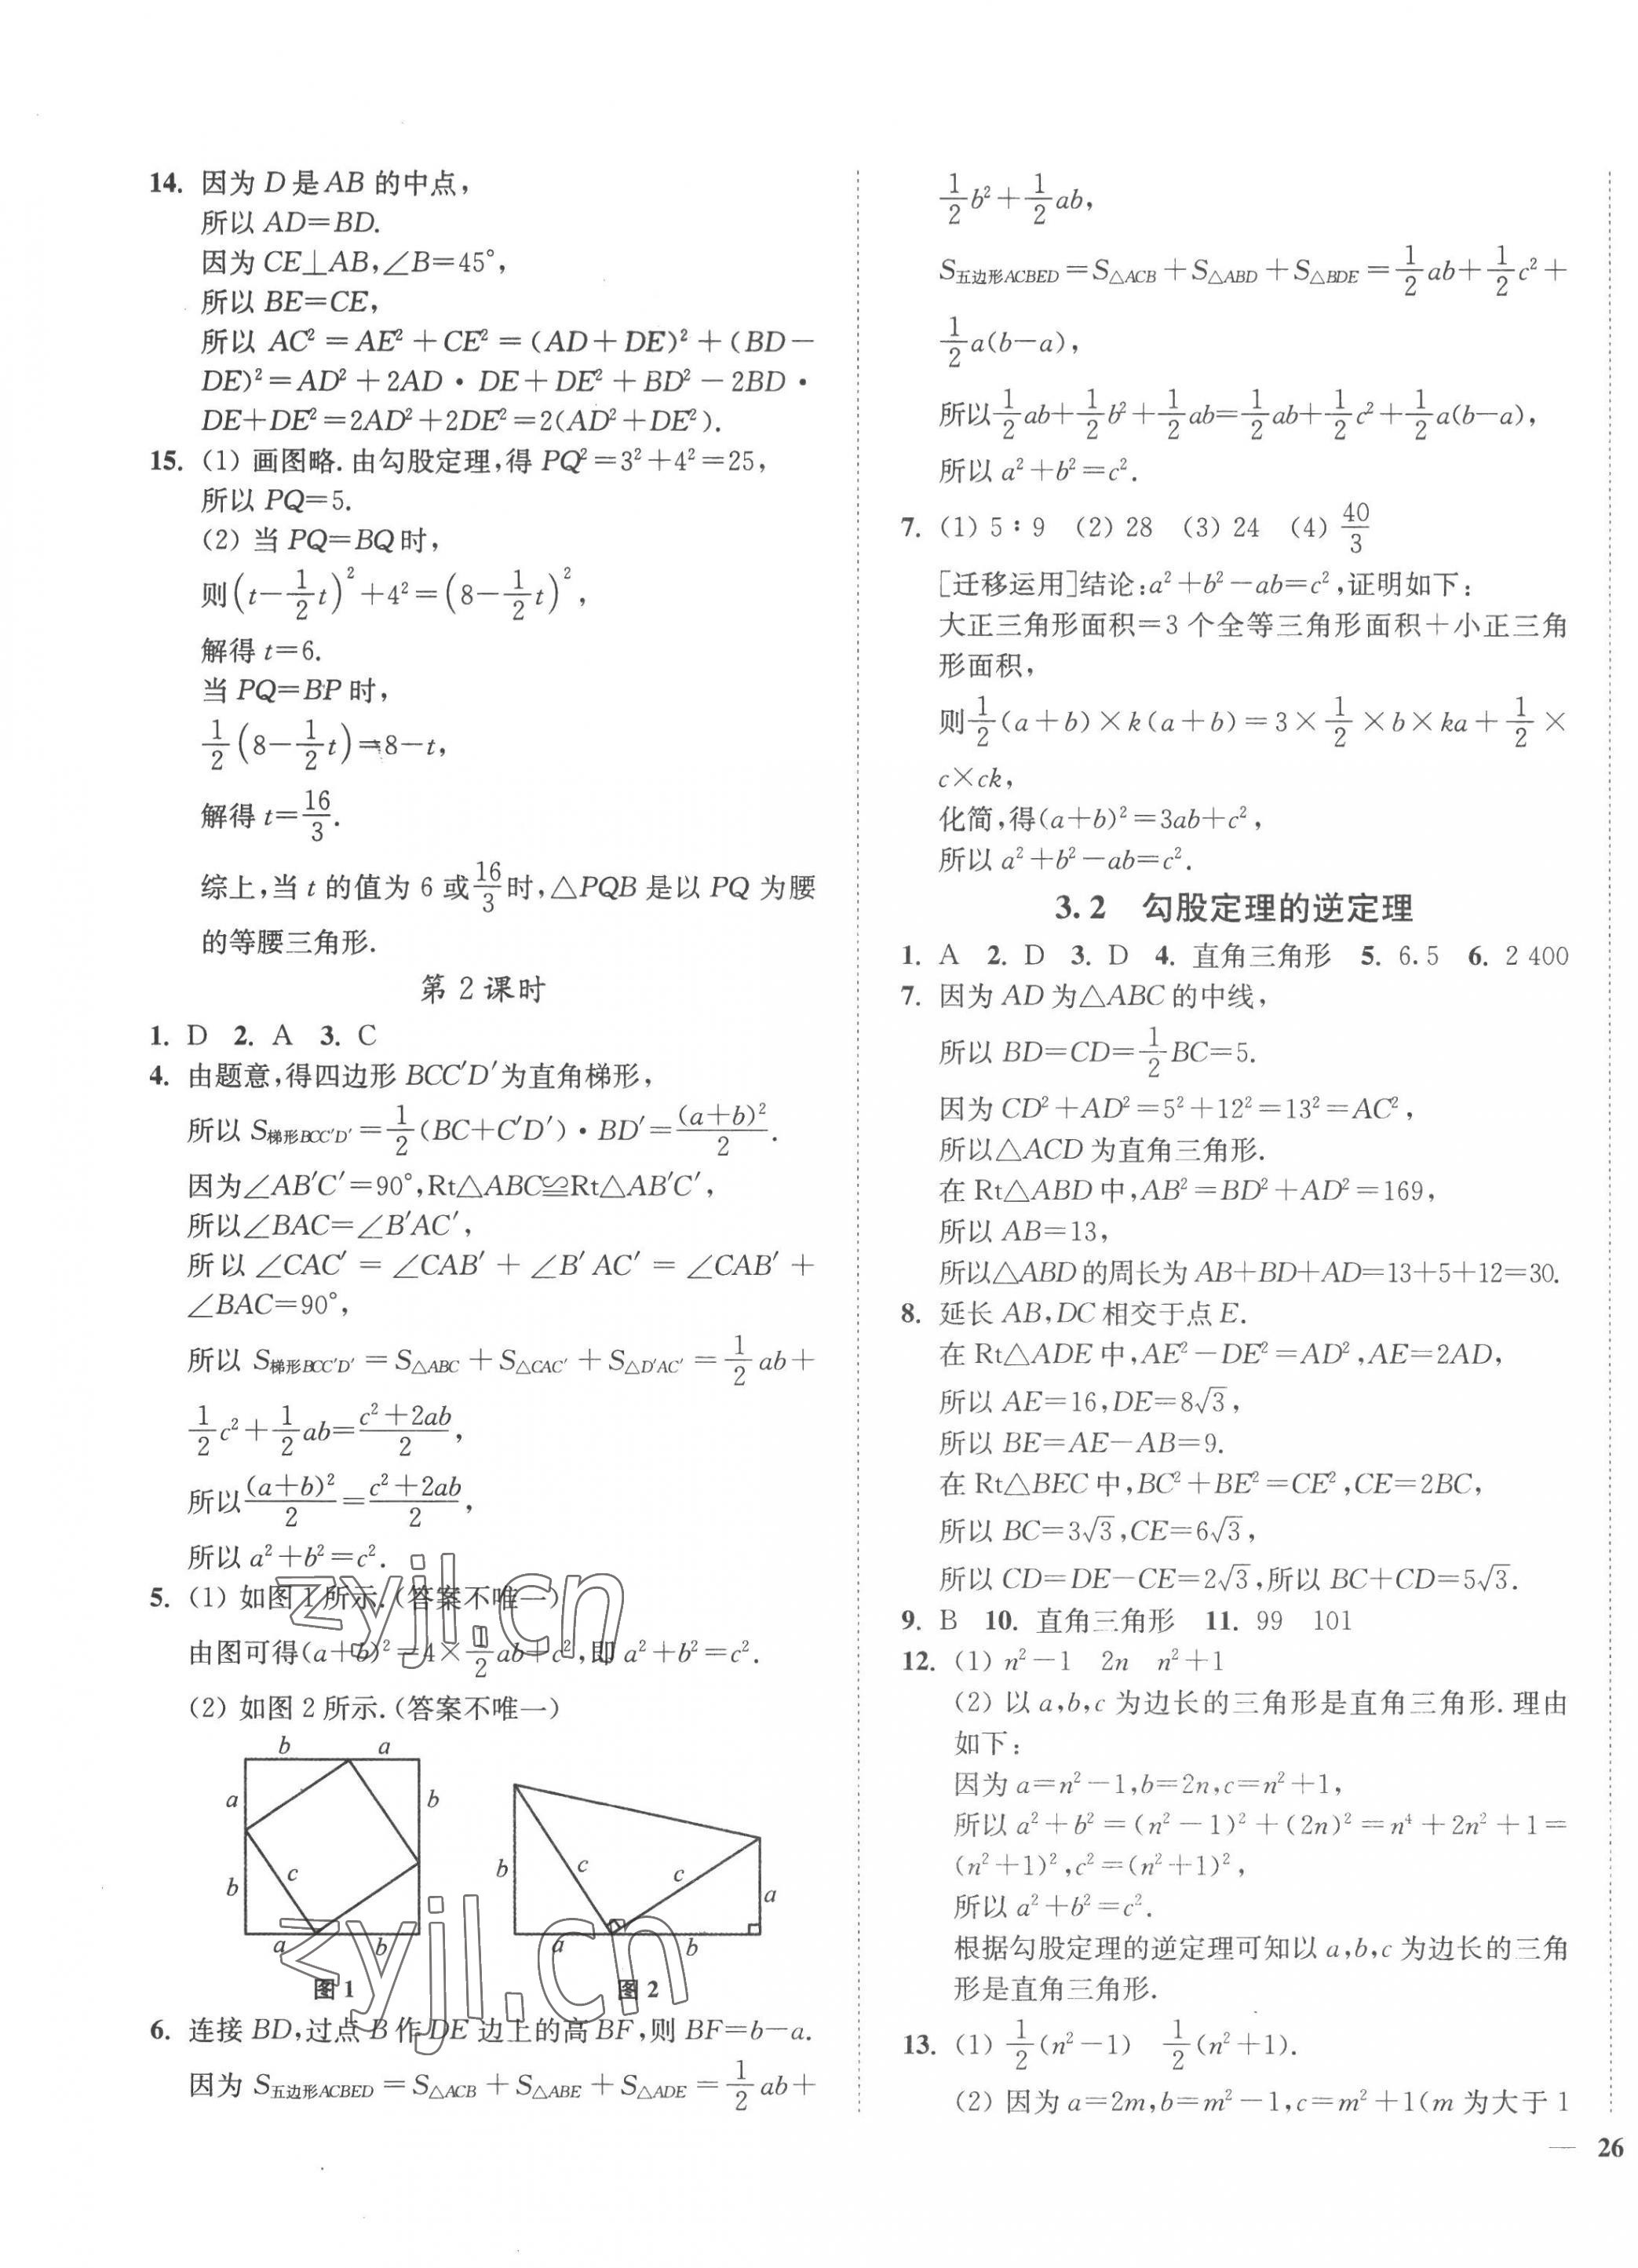 14. 因为 D 是 AB 的中点，
所以 AD=BD.
因为 CE⊥AB,∠B=45°，
所以 BE=CE，
所以 AC² = AE² + CE² = (AD+DE)² + (BD−
DE)² = AD² + 2AD · DE + DE² + BD² − 2BD ·
DE+DE² = 2AD² + 2DE² = 2(AD² + DE²).
15. (1) 画图略.由勾股定理,得 PQ² = 3² + 4² = 25，
所以 PQ=5.
(2) 当 PQ=BQ 时，
则(t−1/2 t)² + 4² = (8−1/2 t)²，
解得 t=6.
当 PQ=BP 时，
1/2(8−1/2 t)=8−t，
解得 t=16/3.
综上,当 t 的值为 6 或 16/3 时,△PQB 是以 PQ 为腰
的等腰三角形.
第 2 课时
1. D 2. A 3. C
4. 由题意,得四边形 BCC′D′为直角梯形，
所以 S梯形BCC′D′ = 1/2(BC+C′D′) · BD′ = (a+b)²/2.
因为∠AB′C′=90°,Rt△ABC≌Rt△AB′C′，
所以∠BAC=∠B′AC′，
所以 ∠CAC′ = ∠CAB′ + ∠B′AC′ = ∠CAB′ +
∠BAC=90°，
所以 S梯形BCC′D′ = S△ABC + S△CAC′ + S△D′AC′ = 1/2 ab +
1/2 c² + 1/2 ab = (c²+2ab)/2，
所以 (a+b)²/2 = (c²+2ab)/2，
所以 a²+b²=c².
5. (1) 如图 1 所示.(答案不唯一)
由图可得(a+b)² = 4×1/2 ab+c²,即 a²+b²=c².
(2) 如图 2 所示.(答案不唯一)
b a
a b
b c
a b
图 1
b c c a
a b
图 2
zyjl.cn
zyjl.cn
6. 连接 BD,过点 B 作 DE 边上的高 BF,则 BF=b−a.
因为 S五边形ACBED = S△ACB + S△ABE + S△ADE = 1/2 ab +
1/2 b² + 1/2 ab，
S五边形ACBED = S△ACB + S△ABD + S△BDE = 1/2 ab + 1/2 c² +
1/2 a(b−a)，
所以 1/2 ab + 1/2 b² + 1/2 ab = 1/2 ab + 1/2 c² + 1/2 a(b−a)，
所以 a²+b²=c².
7. (1) 5∶9 (2) 28 (3) 24 (4) 40/3
[迁移运用]结论:a²+b²−ab=c²,证明如下:
大正三角形面积=3 个全等三角形面积+小正三角
形面积，
则 1/2(a+b)×k(a+b)=3×1/2×b×ka+1/2×
c×ck，
化简,得(a+b)²=3ab+c²，
所以 a²+b²−ab=c².
3.2 勾股定理的逆定理
1. A 2. D 3. D 4. 直角三角形 5. 6.5 6. 2 400
7. 因为 AD 为△ABC 的中线，
所以 BD=CD=1/2 BC=5.
因为 CD²+AD²=5²+12²=13²=AC²，
所以△ACD 为直角三角形.
在 Rt△ABD 中,AB²=BD²+AD²=169，
所以 AB=13，
所以△ABD 的周长为 AB+BD+AD=13+5+12=30.
8. 延长 AB,DC 相交于点 E.
在 Rt△ADE 中,AE²−DE²=AD²,AE=2AD，
所以 AE=16,DE=8√3，
所以 BE=AE−AB=9.
在 Rt△BEC 中,BC²+BE²=CE²,CE=2BC，
所以 BC=3√3,CE=6√3，
所以 CD=DE−CE=2√3,所以 BC+CD=5√3.
9. B 10. 直角三角形 11. 99 101
12. (1) n²−1 2n n²+1
(2) 以 a,b,c 为边长的三角形是直角三角形.理由
如下:
因为 a=n²−1,b=2n,c=n²+1，
所以 a²+b²=(n²−1)²+(2n)²=n⁴+2n²+1=
(n²+1)²,c²=(n²+1)²，
所以 a²+b²=c².
根据勾股定理的逆定理可知以 a,b,c 为边长的三角
形是直角三角形.
13. (1) 1/2(n²−1) 1/2(n²+1).
(2) 因为 a=2m,b=m²−1,c=m²+1(m 为大于 1
— 26